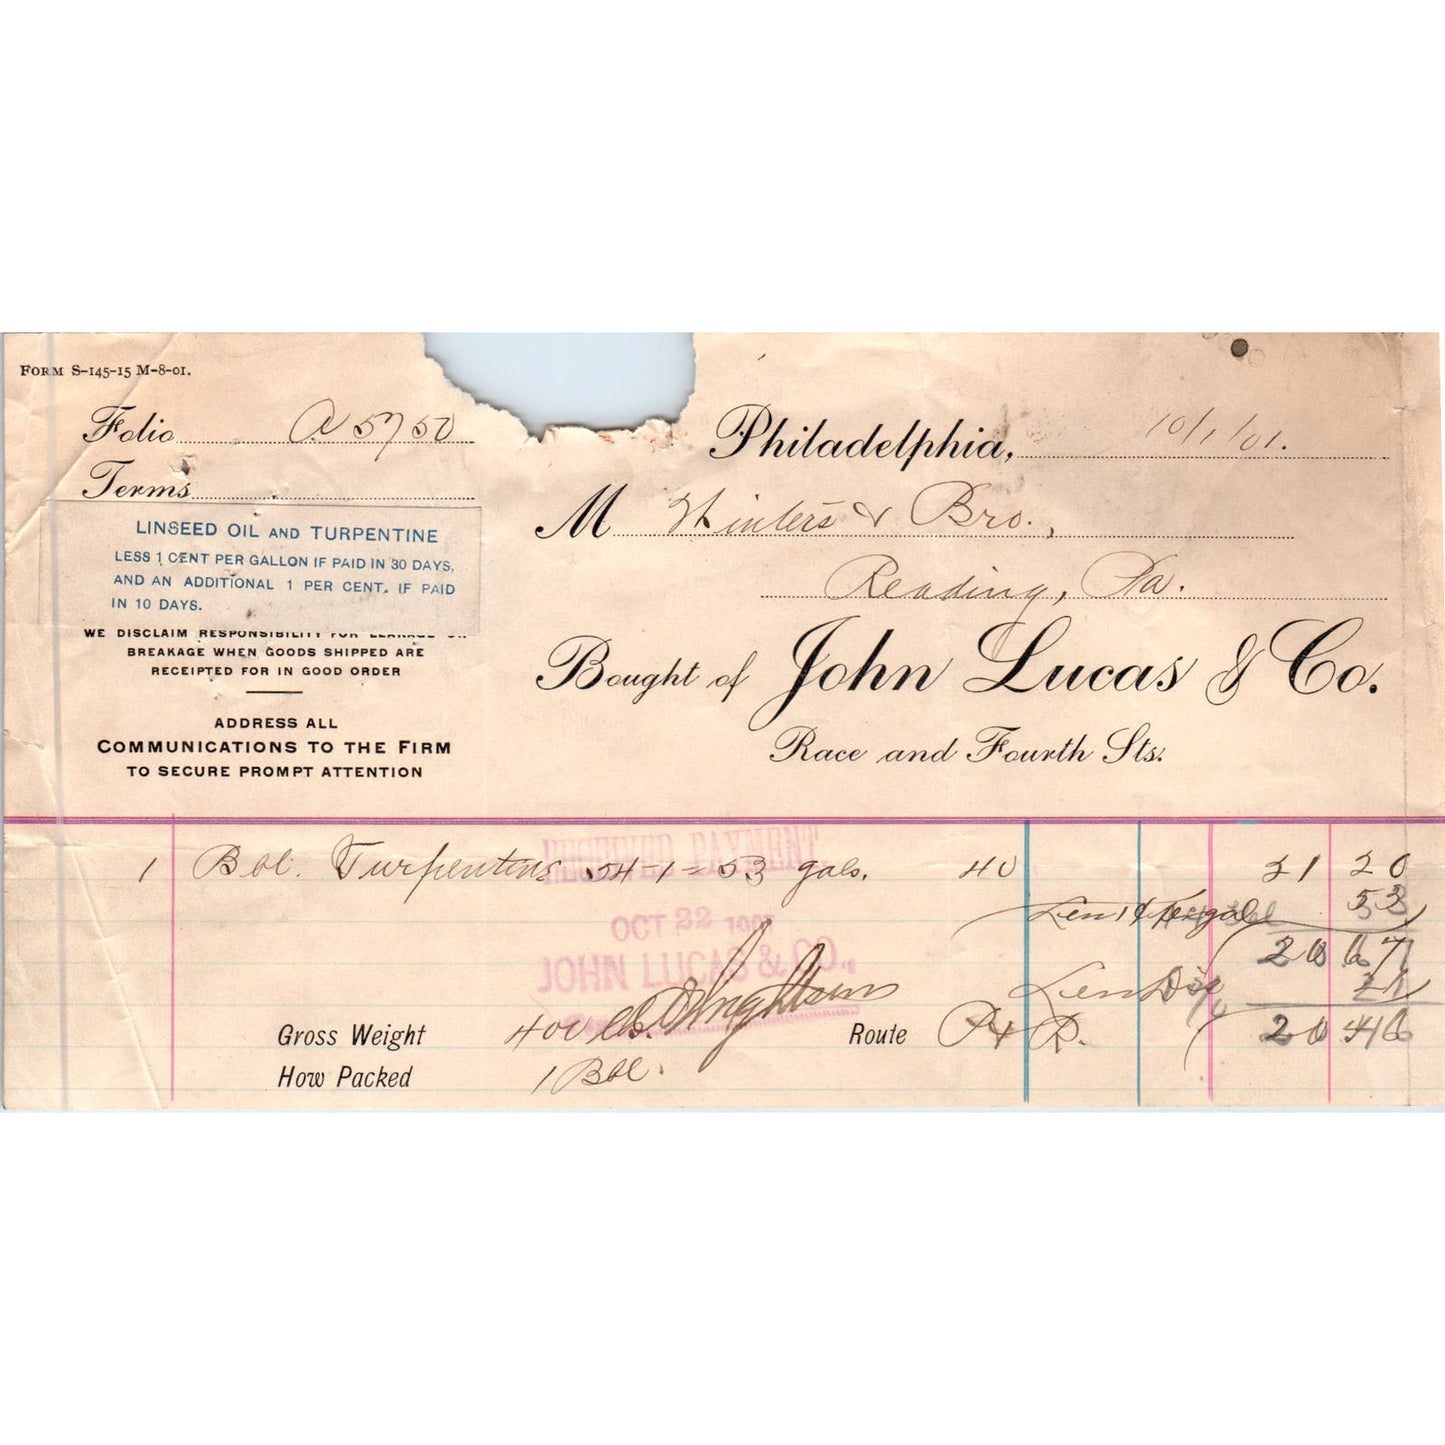 FORM S-145-15 M-8-01.
Folio A 5750
Terms
LINSEED OIL AND TURPENTINE
LESS 1 CENT PER GALLON IF PAID IN 30 DAYS,
AND AN ADDITIONAL 1 PER CENT. IF PAID
IN 10 DAYS.
WE DISCLAIM RESPONSIBILITY FOR LEAKAGE OR
BREAKAGE WHEN GOODS SHIPPED ARE
RECEIPTED FOR IN GOOD ORDER
ADDRESS ALL
COMMUNICATIONS TO THE FIRM
TO SECURE PROMPT ATTENTION
Philadelphia, 10/1/01.
M Winters & Bro.,
Reading, Pa.
Bought of John Lucas & Co.
Race and Fourth Sts.
1 Bbl. Turpentine 54-1=53 gals. 40 21 20
Less 1¢ per gal 53
20 67
Less Dis 21
20 46
RECEIVED PAYMENT
OCT 22 1901
JOHN LUCAS & CO.,
Gross Weight 400 lbs. Route P & R.
How Packed 1 Bbl.